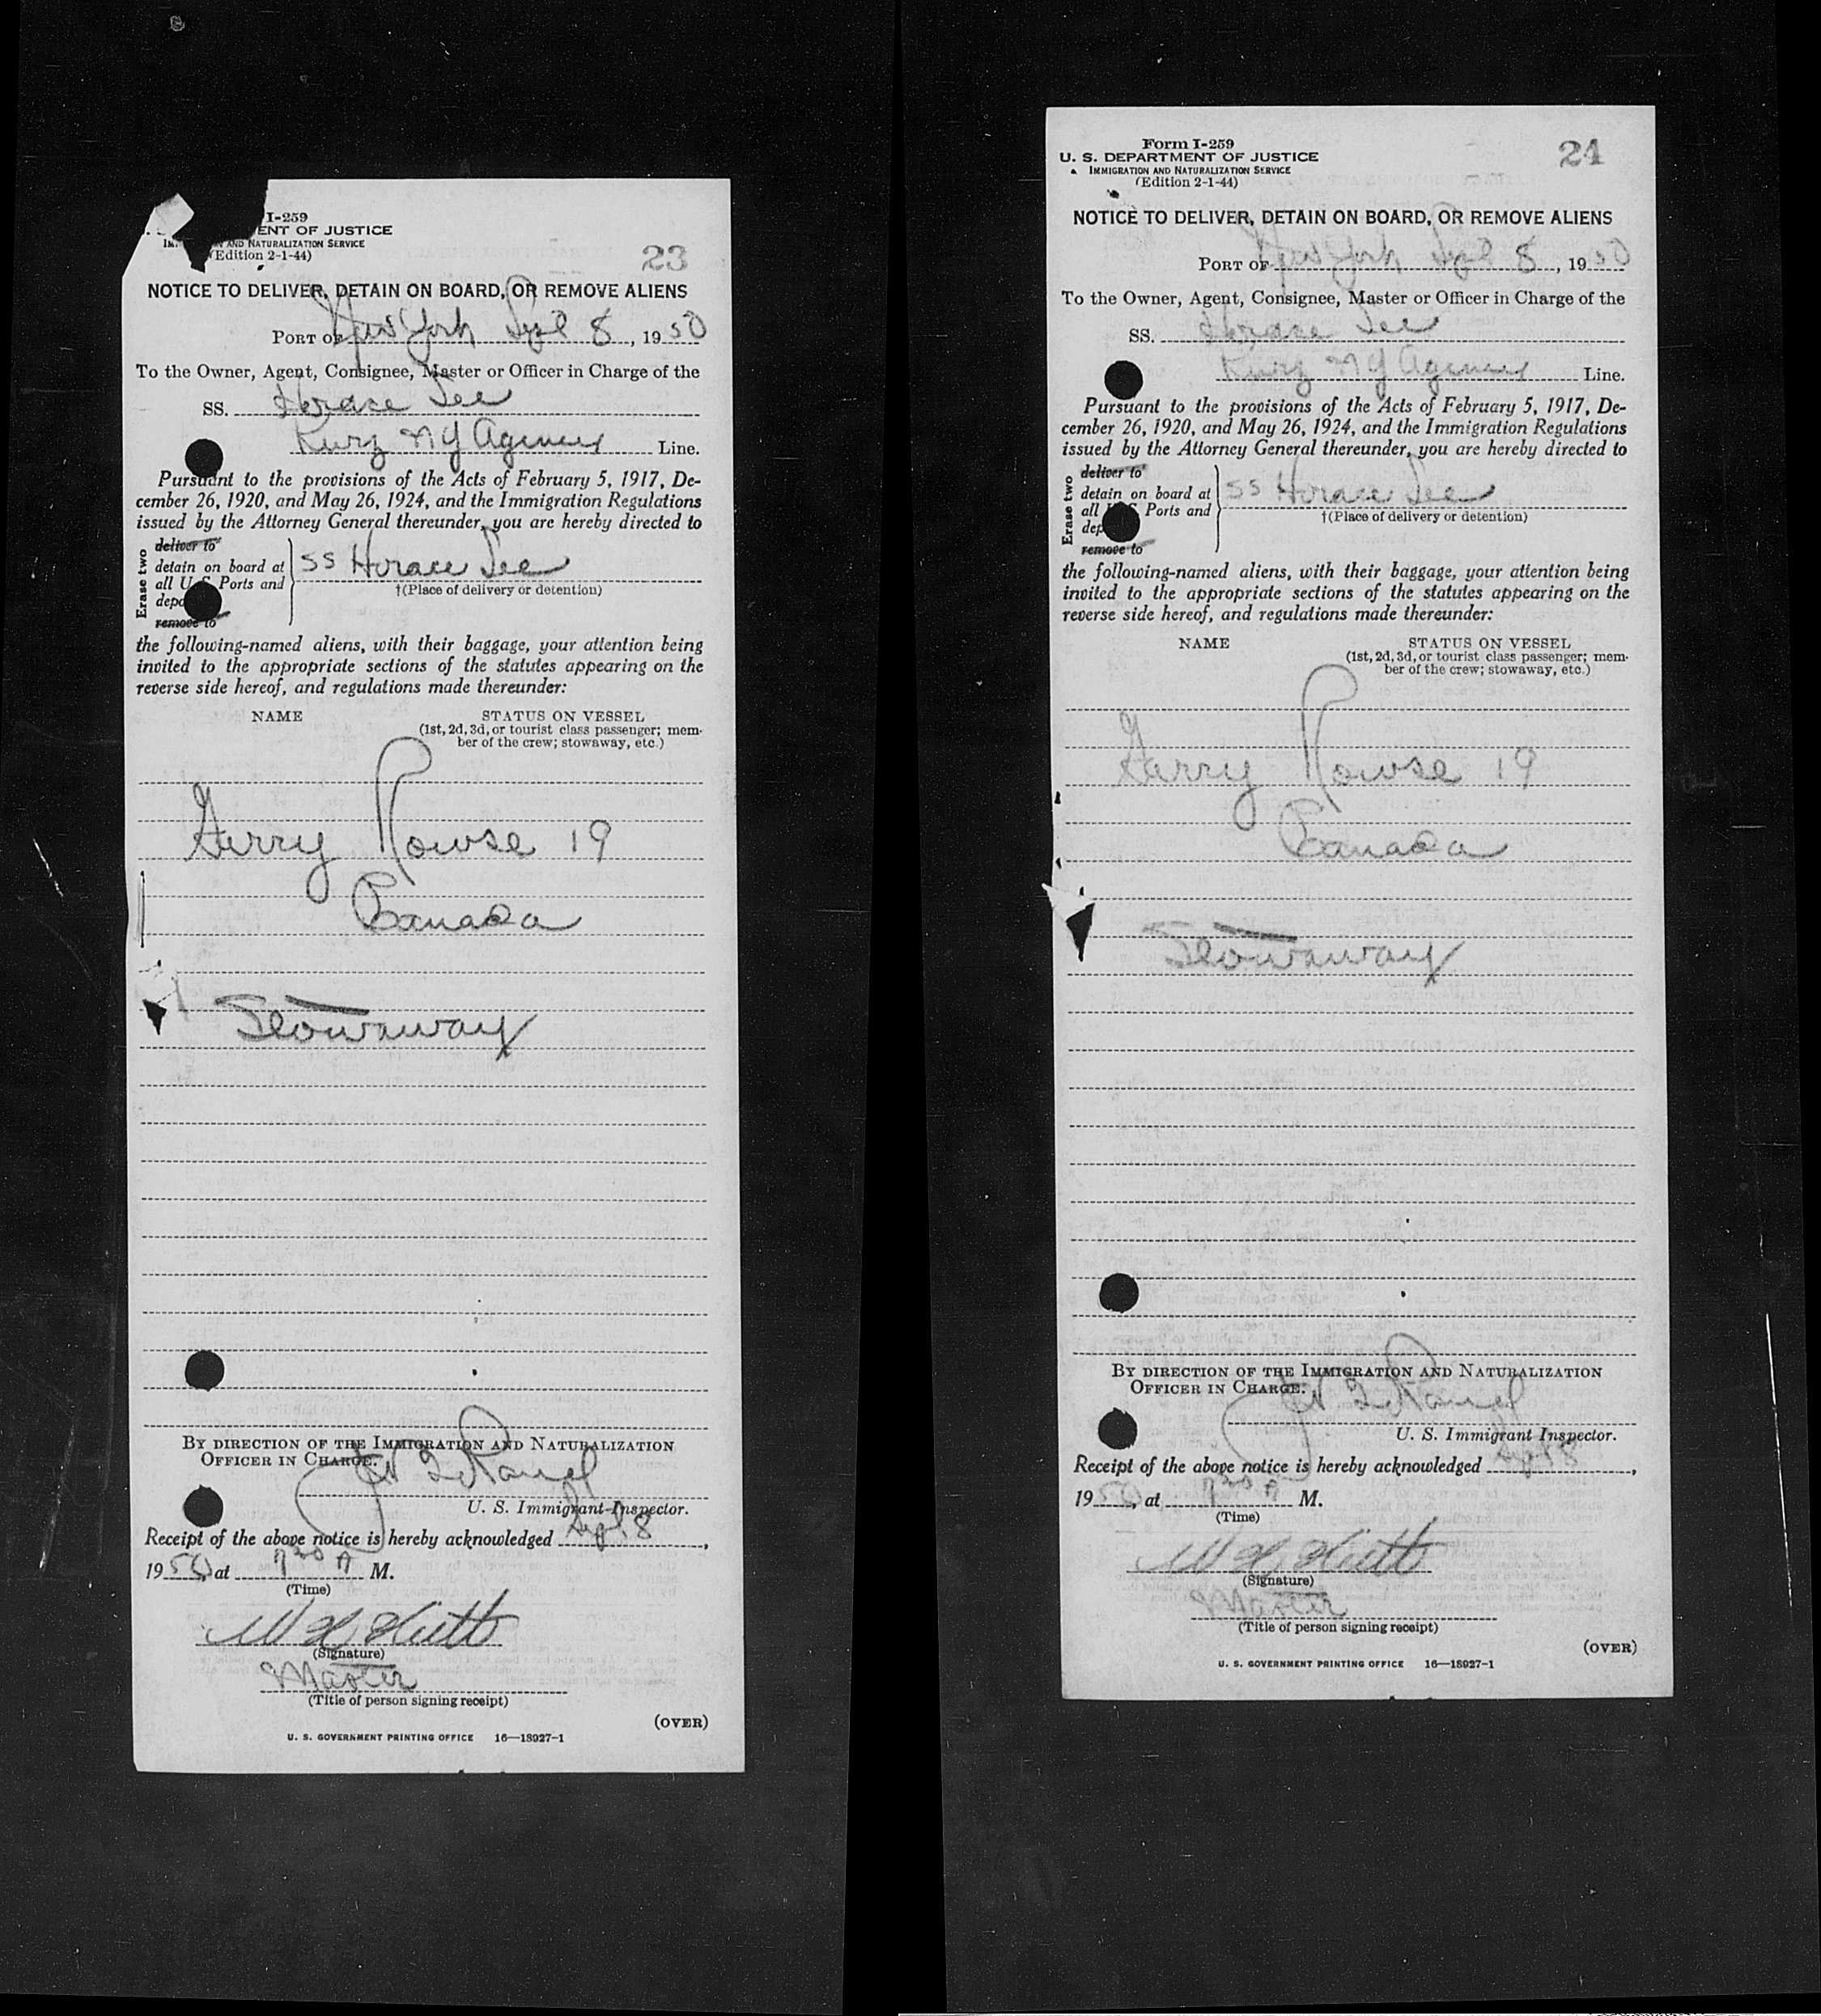 I-259
ENT OF JUSTICE
AND NATURALIZATION SERVICE
(Edition 2-1-44)
23
NOTICE TO DELIVER, DETAIN ON BOARD, OR REMOVE ALIENS
PORT OF New York Sept 8, 1950
To the Owner, Agent, Consignee, Master or Officer in Charge of the
SS. Horace See
Kurz NY Agency Line.
Pursuant to the provisions of the Acts of February 5, 1917, De-
cember 26, 1920, and May 26, 1924, and the Immigration Regulations
issued by the Attorney General thereunder, you are hereby directed to
Erase two
deliver to
detain on board at
all U S Ports and
depo
remove to
SS Horace See
†(Place of delivery or detention)
the following-named aliens, with their baggage, your attention being
invited to the appropriate sections of the statutes appearing on the
reverse side hereof, and regulations made thereunder:
NAME STATUS ON VESSEL
(1st, 2d, 3d, or tourist class passenger; mem-
ber of the crew; stowaway, etc.)
Gerry Rowse 19
Canada
Stowaway
BY DIRECTION OF THE IMMIGRATION AND NATURALIZATION
OFFICER IN CHARGE:
U. S. Immigrant Inspector.
Receipt of the above notice is hereby acknowledged Sept 8,
1950, at 7 30 A M.
(Time)
(Signature)
Master
(Title of person signing receipt)
(OVER)
U. S. GOVERNMENT PRINTING OFFICE 16—18927-1
Form I-259
U. S. DEPARTMENT OF JUSTICE
IMMIGRATION AND NATURALIZATION SERVICE
(Edition 2-1-44)
24
NOTICE TO DELIVER, DETAIN ON BOARD, OR REMOVE ALIENS
PORT OF New York Sept 8, 1950
To the Owner, Agent, Consignee, Master or Officer in Charge of the
SS. Horace See
Kurz NY Agency Line.
Pursuant to the provisions of the Acts of February 5, 1917, De-
cember 26, 1920, and May 26, 1924, and the Immigration Regulations
issued by the Attorney General thereunder, you are hereby directed to
Erase two
deliver to
detain on board at
all S Ports and
dep
remove to
SS Horace See
†(Place of delivery or detention)
the following-named aliens, with their baggage, your attention being
invited to the appropriate sections of the statutes appearing on the
reverse side hereof, and regulations made thereunder:
NAME STATUS ON VESSEL
(1st, 2d, 3d, or tourist class passenger; mem-
ber of the crew; stowaway, etc.)
Gerry Rowse 19
Canada
Stowaway
BY DIRECTION OF THE IMMIGRATION AND NATURALIZATION
OFFICER IN CHARGE:
U. S. Immigrant Inspector.
Receipt of the above notice is hereby acknowledged Sept 8,
1950, at 7 30 A M.
(Time)
(Signature)
Master
(Title of person signing receipt)
(OVER)
U. S. GOVERNMENT PRINTING OFFICE 16—18927-1